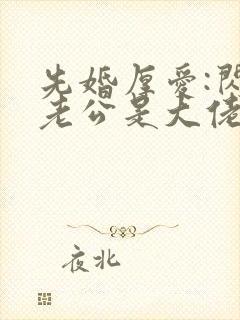 先婚厚爱:閃
老公是大佬
夜北